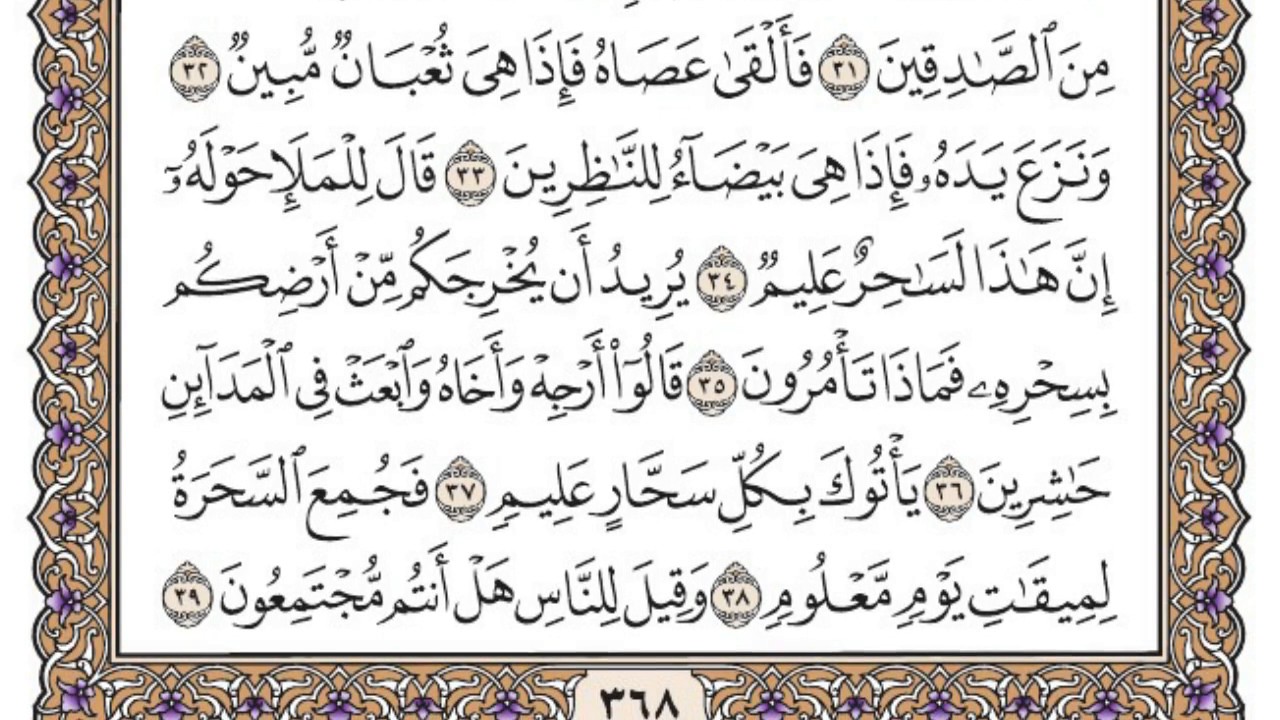 مِنَ ٱلصَّٰدِقِينَ ٣١ فَأَلْقَىٰ عَصَاهُ فَإِذَا هِىَ ثُعْبَانٌ مُّبِينٌ ٣٢
وَنَزَعَ يَدَهُۥ فَإِذَا هِىَ بَيْضَآءُ لِلنَّٰظِرِينَ ٣٣ قَالَ لِلْمَلَإِ حَوْلَهُۥٓ
إِنَّ هَٰذَا لَسَٰحِرٌ عَلِيمٌ ٣٤ يُرِيدُ أَن يُخْرِجَكُم مِّنْ أَرْضِكُم
بِسِحْرِهِۦ فَمَاذَا تَأْمُرُونَ ٣٥ قَالُوٓا۟ أَرْجِهْ وَأَخَاهُ وَٱبْعَثْ فِى ٱلْمَدَآئِنِ
حَٰشِرِينَ ٣٦ يَأْتُوكَ بِكُلِّ سَحَّارٍ عَلِيمٍ ٣٧ فَجُمِعَ ٱلسَّحَرَةُ
لِمِيقَٰتِ يَوْمٍ مَّعْلُومٍ ٣٨ وَقِيلَ لِلنَّاسِ هَلْ أَنتُم مُّجْتَمِعُونَ ٣٩
٣٦٨